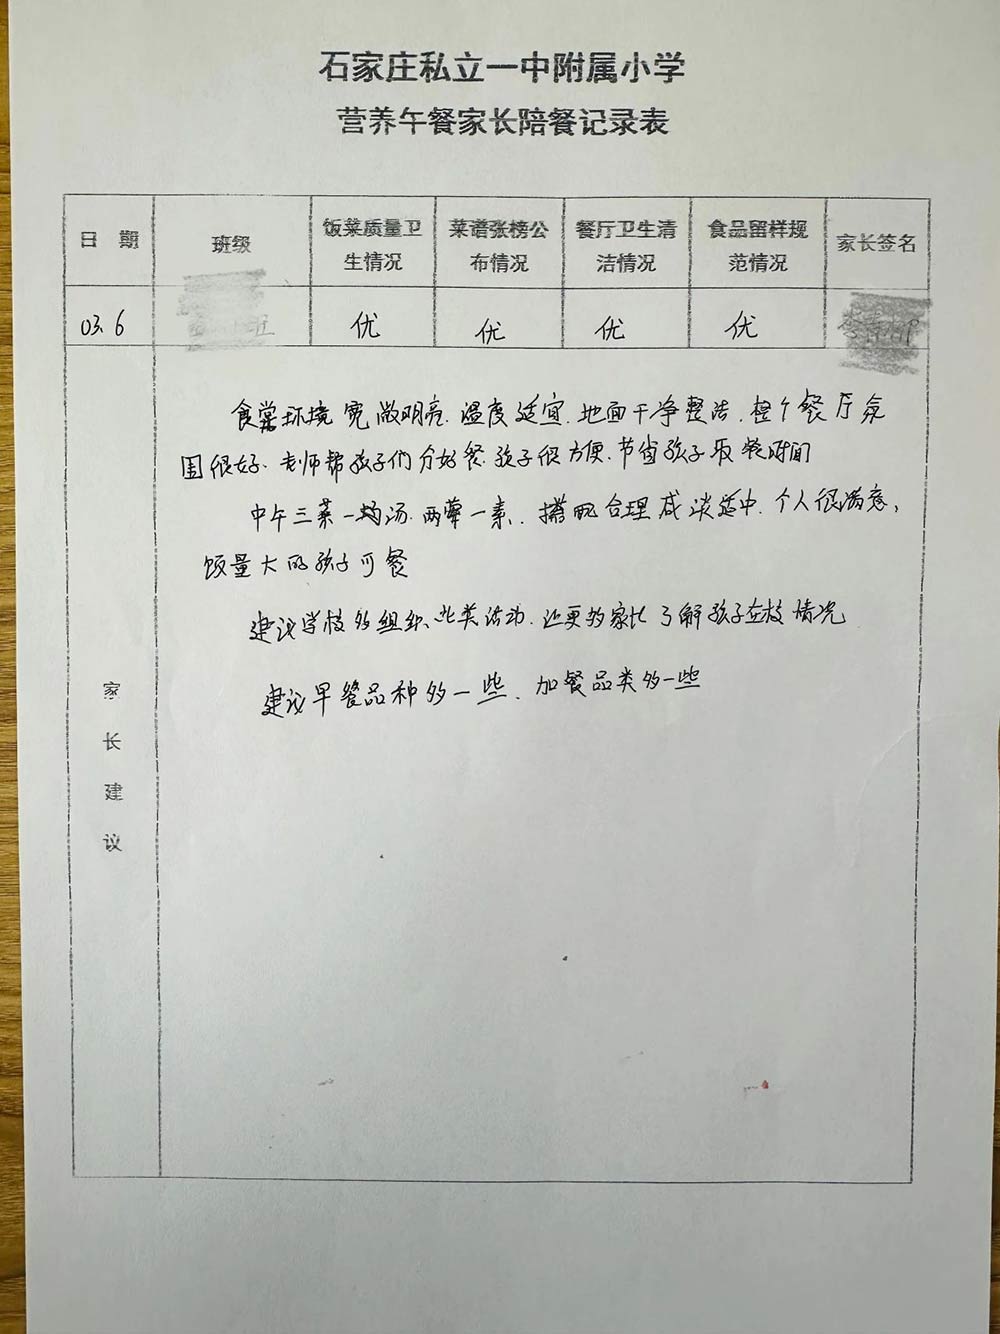 石家庄私立一中附属小学
营养午餐家长陪餐记录表
日 期 班级 饭菜质量卫生情况 菜谱张榜公布情况 餐厅卫生清洁情况 食品留样规范情况 家长签名
03.6 优 优 优 优
食堂环境宽敞明亮.温度适宜.地面干净整洁.整个餐厅氛
围很好.老师帮孩子们分好餐.孩子很方便.节省孩子取餐时间
中午三菜一汤.两荤一素.搭配合理咸淡适中.个人很满意,
饭量大的孩子可餐
建议学校多组织此类活动.让更多家长了解孩子在校情况
建议早餐品种多一些.加餐品类多一些
家长建议